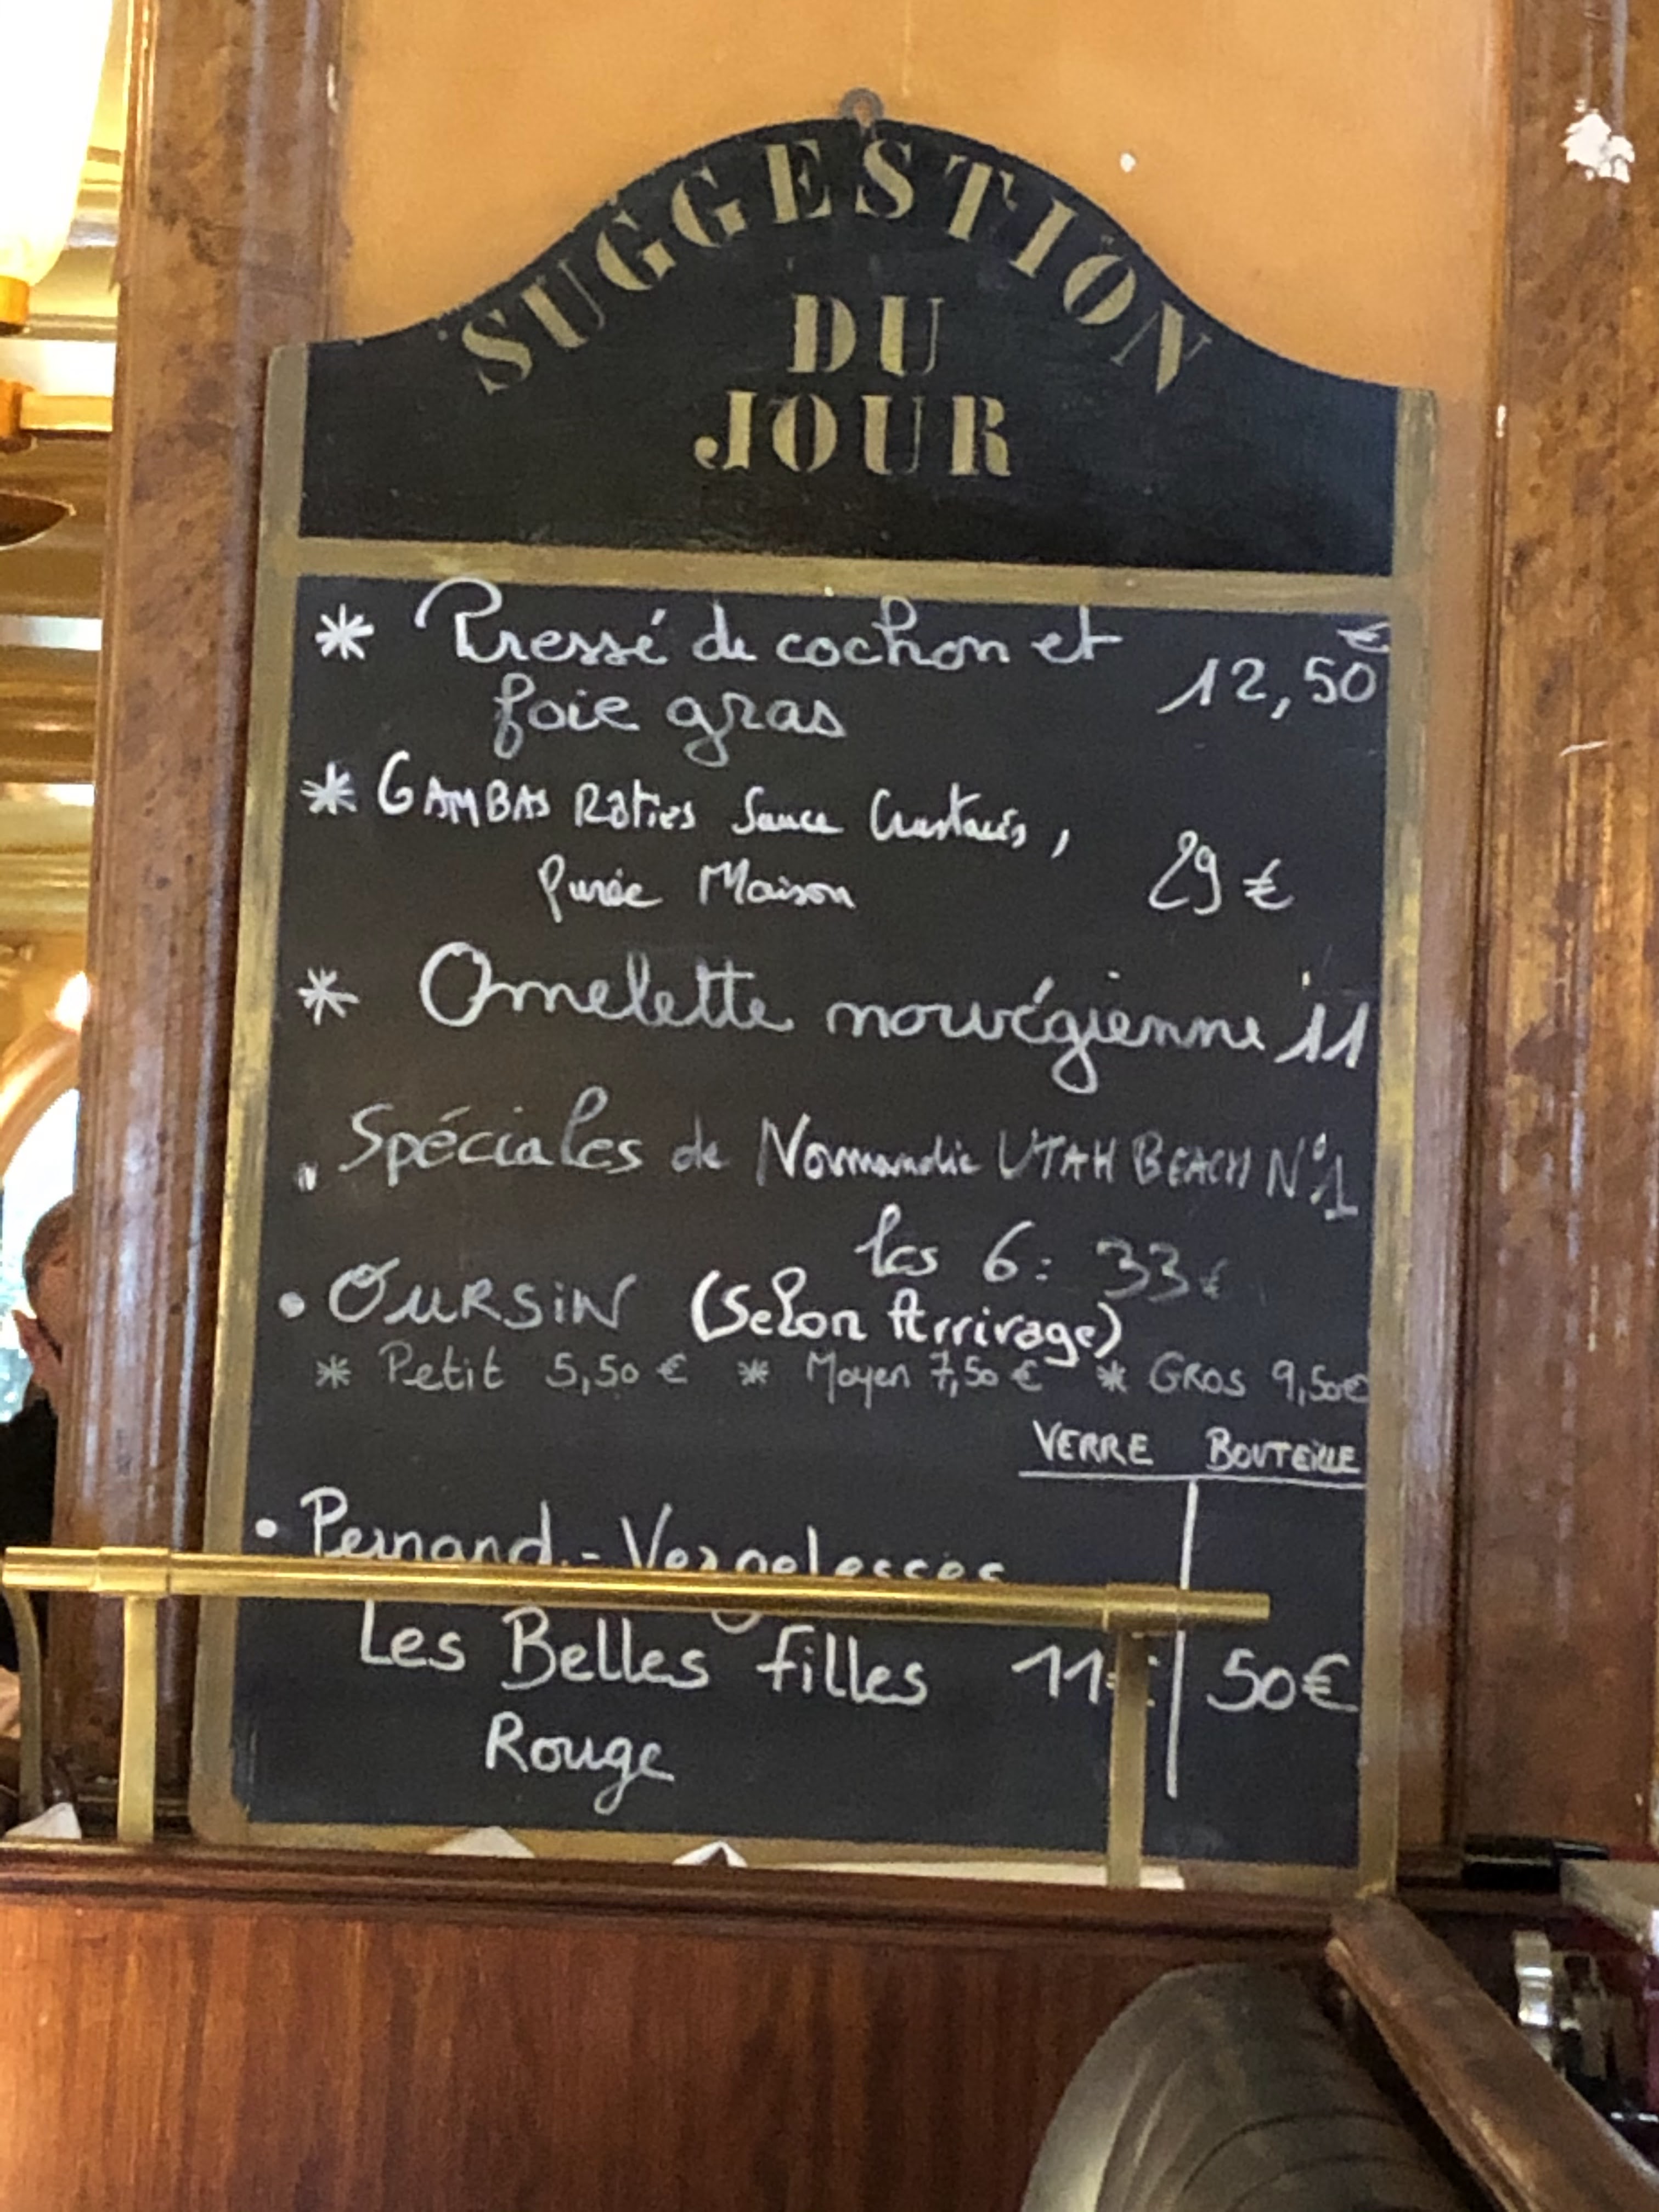 SUGGESTION
DU
JOUR
* Pressé de cochon et
foie gras 12,50€
* GAMBAS Rôties Sauce Crustacés,
purée Maison 29€
* Omelette norvégienne 11
. Spéciales de Normandie UTAH BEACH N°1
les 6: 33€
• OURSiN (Selon Arrivage)
* Petit 5,50€ * Moyen 7,50€ * GROS 9,50€
VERRE BOUTEILLE
• Pernand-Vergelesses
Les Belles filles 11€ 50€
Rouge